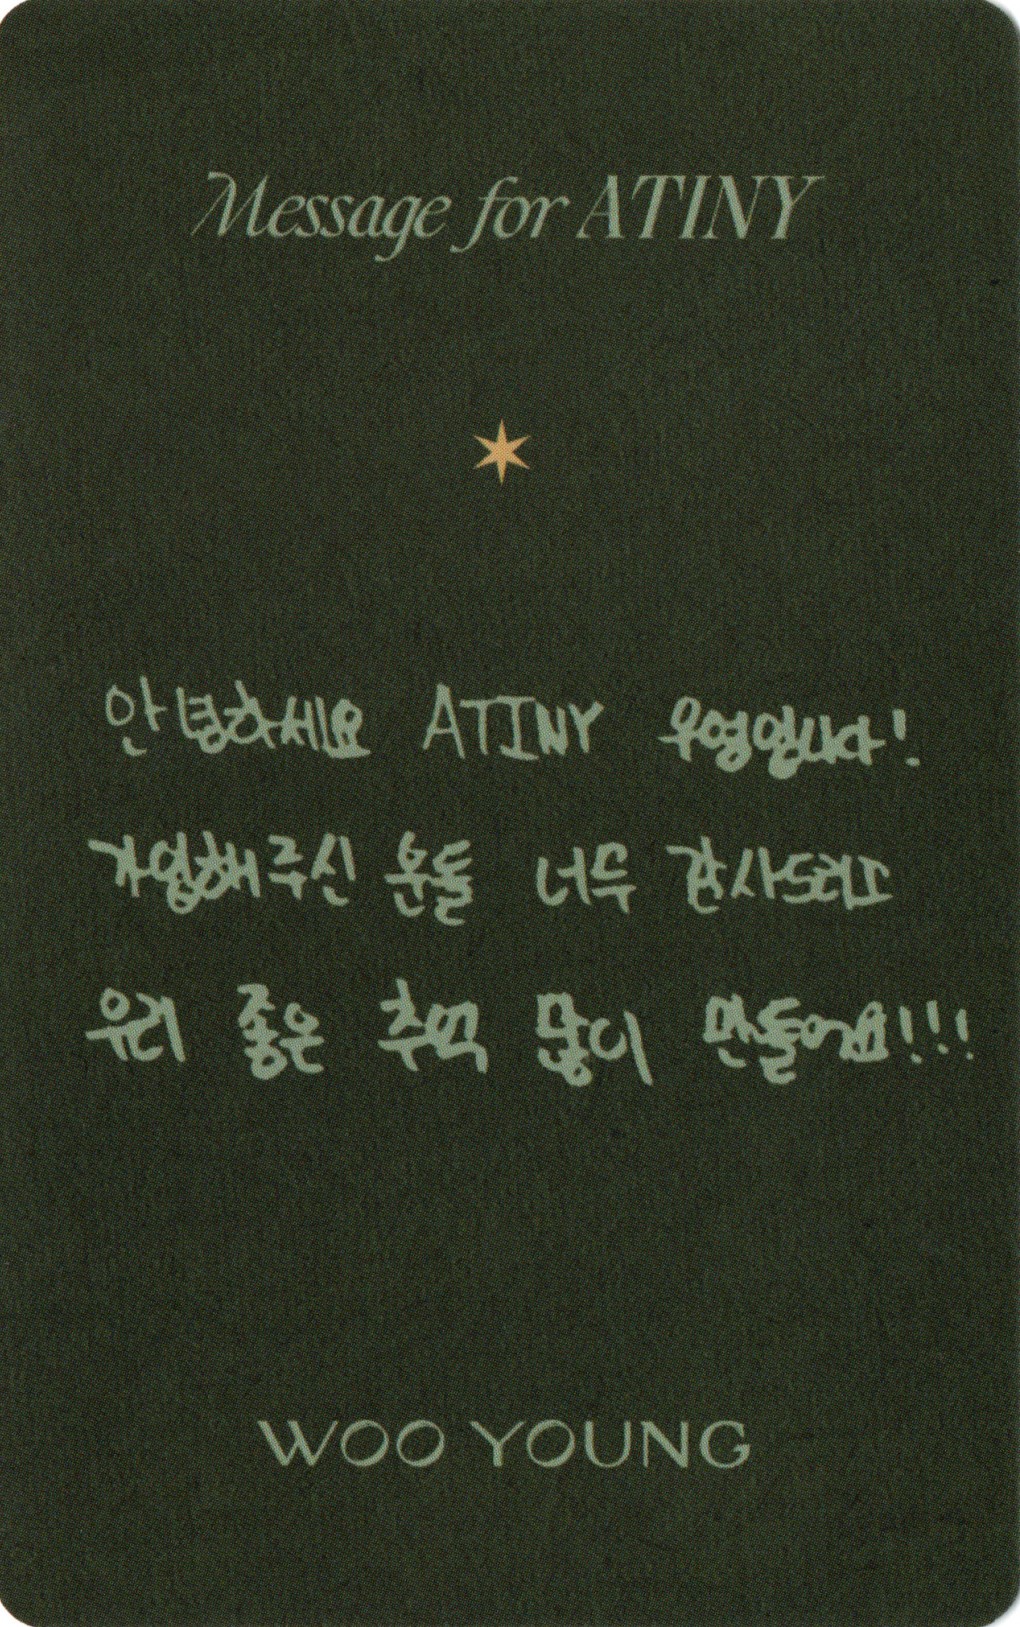 Message for ATINY
안녕하세요 ATINY 우영입니다!
가입해주신 분들 너무 감사드리고
우리 좋은 추억 많이 만들어요!!!
WOO YOUNG